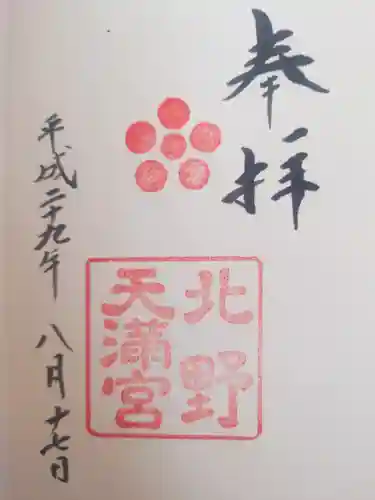 奉拝
北野
天満宮
平成二十九年
八月十七日